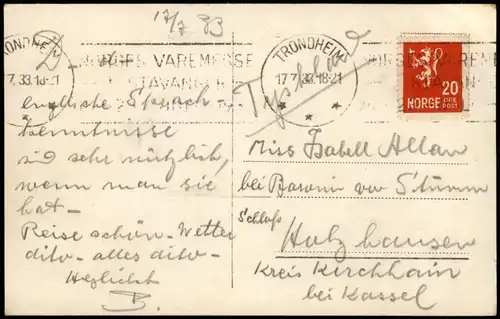 17/7 33
TRONDHEIM
17.7.33.18-21
NORGES VAREMESSE
STAVANGER
TRONDHEIM
17.7.33.18-21
NORGE
20
ØRE
POST
Tyskland
englische Sprach-
kenntnisse
sind sehr nützlich,
wenn man sie
hat-
Reise schön-Wetter
dito-alles dito-
Herzlichst
B.
Miss Isabell Allan
bei Baronin von Stumm
Schloß
Holzhausen
Kreis Kirchhain
bei Kassel